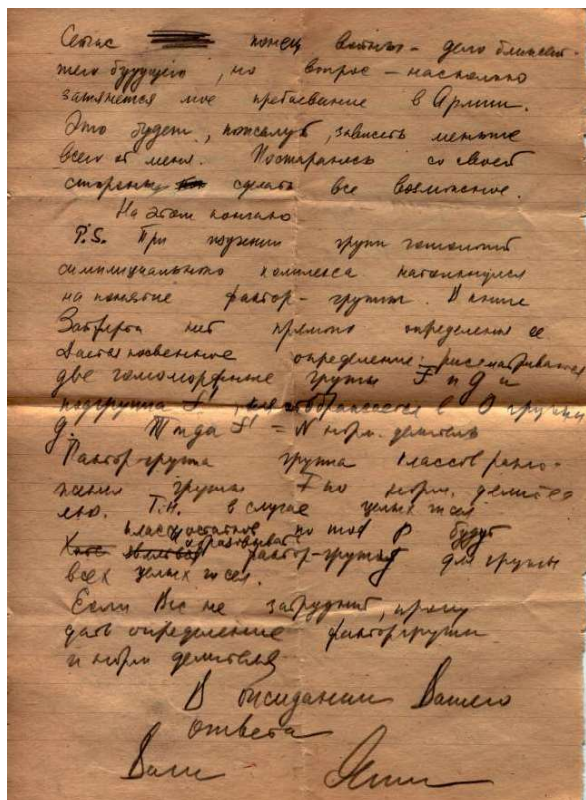 Сейчас конец войны – дело ближай-
шего будущего, но вопрос – насколько
затянется мое пребывание в Армии.
Это будет, пожалуй, зависеть меньше
всего от меня. Постараюсь со своей
стороны сделать все возможное.
На этом кончаю
P.S. При изучении групп гомологий
симплициального комплекса натолкнулся
на понятие фактор-группы. В книге
Зейферта нет прямого определения ее
Дается косвенное определение: рассматриваются
две гомоморфные группы F и g и
подгруппа F', отображается в 0 группы
g. Тогда F' = N норм. делитель
Фактор-группа группа классов разло-
жения группы F по норм. делите
лю. Т.н. в случае целых чисел
классы остатков по mod p будут
образовывать фактор-группу для группы
всех целых чисел.
Если Вас не затруднит, прошу
дать определение факторгруппы
и норм делителя
В ожидании Вашего
ответа
Ваш